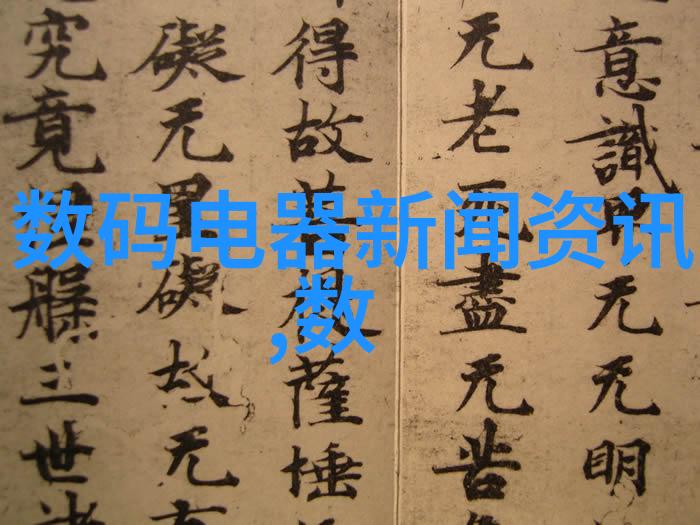 数码电器新闻资讯
,数
意識界无无明
无老死盡无苦
得故菩提薩埵
礙无罣礙故无
究竟涅槃三世諸